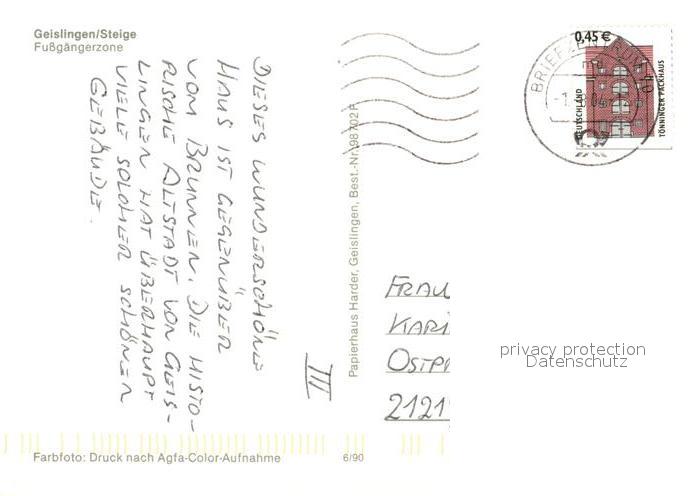 Geislingen/Steige
Fußgängerzone
DIESES WUNDERSCHÖNE
HAUS IST GEGENÜBER
VOM BRUNNEN. DIE HISTO-
RISCHE ALTSTADT VON GEIS-
LINGEN HAT ÜBERHAUPT
VIELE SOLCHER SCHÖNEN
GEBÄUDE.
III
Papierhaus Harder, Geislingen, Best.-Nr. 98702 F
0,45 €
DEUTSCHLAND
TÖNNINGER PACKHAUS
BRIEFZENTRUM
FRAU
KARI
OSTPR
2121
privacy protection
Datenschutz
Farbfoto: Druck nach Agfa-Color-Aufnahme
6/90